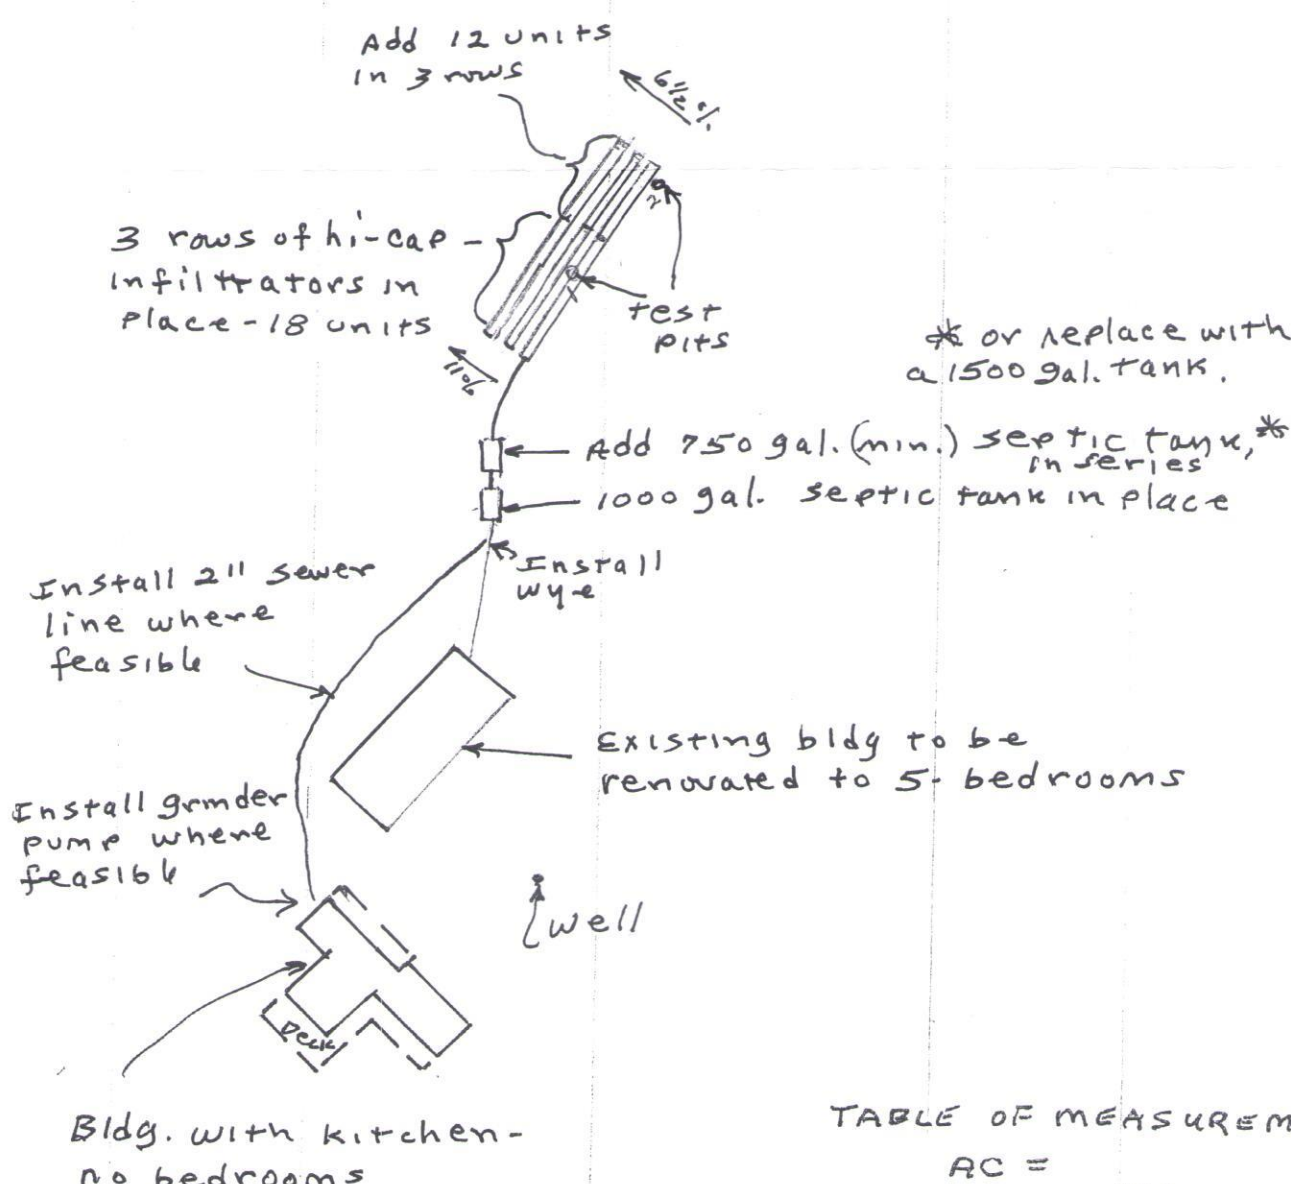 Add 12 units
in 3 rows
6 1/2 %
3 rows of hi-cap
infiltrators in
place - 18 units
2
1
test
pits
* or replace with
a 1500 gal. tank.
Add 750 gal. (min.) septic tank, *
in series
1000 gal. septic tank in place
Install
wye
Install 2" sewer
line where
feasible
Existing bldg to be
renovated to 5-bedrooms
Install grinder
pump where
feasible
well
Deck
Bldg. with kitchen-
no bedrooms
TABLE OF MEASUREM
AC =